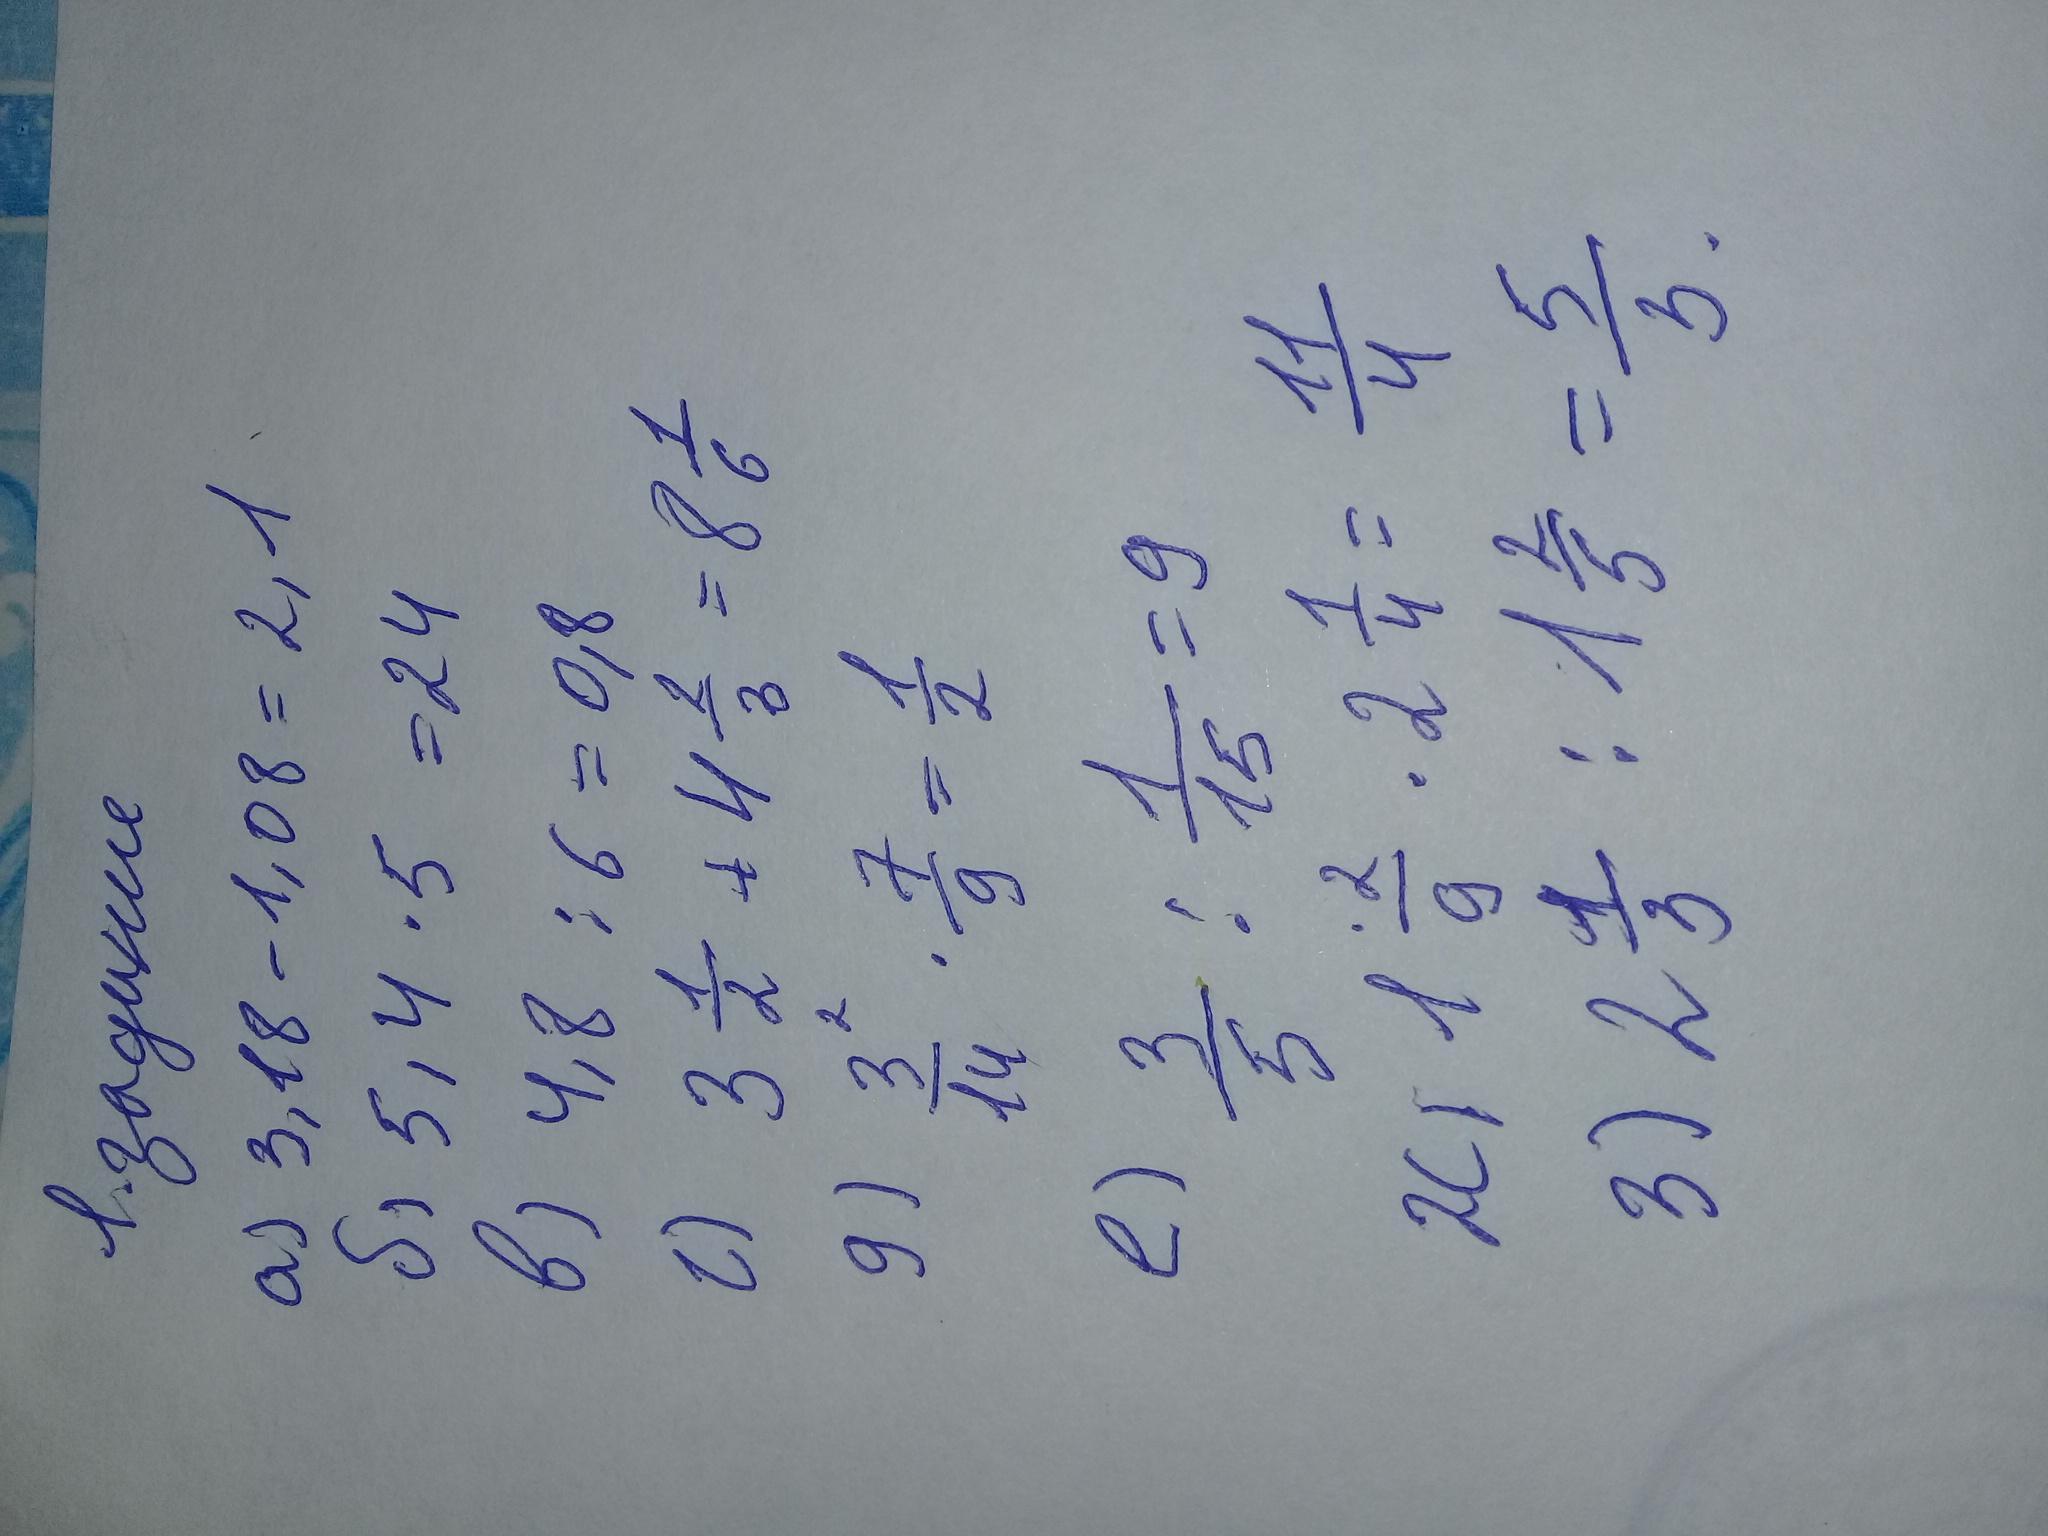 1. задание
а) 3,18 - 1,08 = 2,1
б) 5,4 · 5 = 24
в) 4,8 : 6 = 0,8
г) 3 1/2 + 4 2/3 = 8 1/6
д) 3/14 ² · 7/9 = 1/2
е) 3/5 : 1/15 = 9
ж) 1 2/9 · 2 1/4 = 11/4
з) 2 1/3 : 1 2/5 = 5/3.